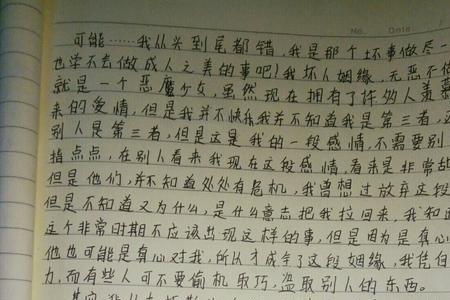 No. Date
可能……我从头到尾都错,我是那个坏事做尽一
也学不去做成人之美的事吧!我坏人姻缘,无恶不作
就是一个恶魔少女,虽然现在拥有了许多人羡慕
来的爱情,但是我并不快乐我并不知道我是第三者,
别人是第三者,但是这是我的一段感情,不需要别
指点点,在别人看来我现在这段感情,看来是非常
但是他们,并不知道处处有危机,我曾想过放弃这段
但是不知道又为什么,是什么意志把我拉回来,我知道
这个非常时期不应该出现这样的事,但是因为是真心
他也可能是真心对我,所以才成全了这段姻缘,我凭自
力,而有些人可不要偷机取巧,盗取别人的东西。